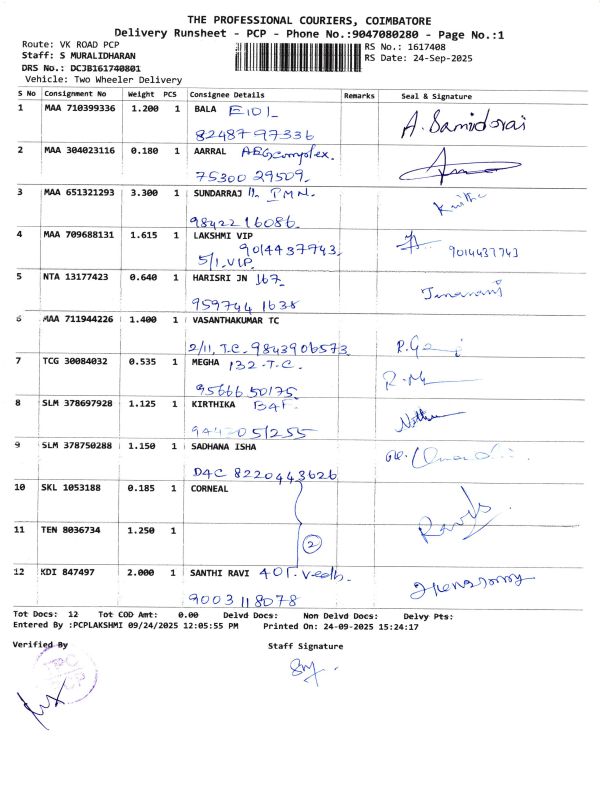 THE PROFESSIONAL COURIERS, COIMBATORE
Delivery Runsheet - PCP - Phone No.:9047080280 - Page No.:1
Route: VK ROAD PCP
RS No.: 1617408
Staff: S MURALIDHARAN
RS Date: 24-Sep-2025
DRS No.: DCJB161740801
Vehicle: Two Wheeler Delivery
S No Consignment No Weight PCS Consignee Details Remarks Seal & Signature
1 MAA 710399336 1.200 1 BALA E101 A. Samidorai
82487 97336
2 MAA 304023116 0.180 1 AARRAL AEG complex.
75300 29509.
3 MAA 651321293 3.300 1 SUNDARRAJ 11. PMN.
98422 16086.
4 MAA 709688131 1.615 1 LAKSHMI VIP
9014437743. 9014437743
5/1, VIP.
5 NTA 13177423 0.640 1 HARISRI JN 167.
959744 1638
6 MAA 711944226 1.400 1 VASANTHAKUMAR TC
2/11, T.C. 9843906573
7 TCG 30084032 0.535 1 MEGHA 132-T.C.
95666 50175.
8 SLM 378697928 1.125 1 KIRTHIKA B4F.
51255
9 SLM 378750288 1.150 1 SADHANA ISHA
D4C 8220443626
10 SKL 1053188 0.185 1 CORNEAL
2
11 TEN 8036734 1.250 1
12 KDI 847497 2.000 1 SANTHI RAVI
90031 18078
Tot Docs: 12 Tot COD Amt: 0.00 Delvd Docs: Non Delvd Docs: Delvy Pts:
Entered By :PCPLAKSHMI 09/24/2025 12:05:55 PM Printed On: 24-09-2025 15:24:17
Verified By Staff Signature